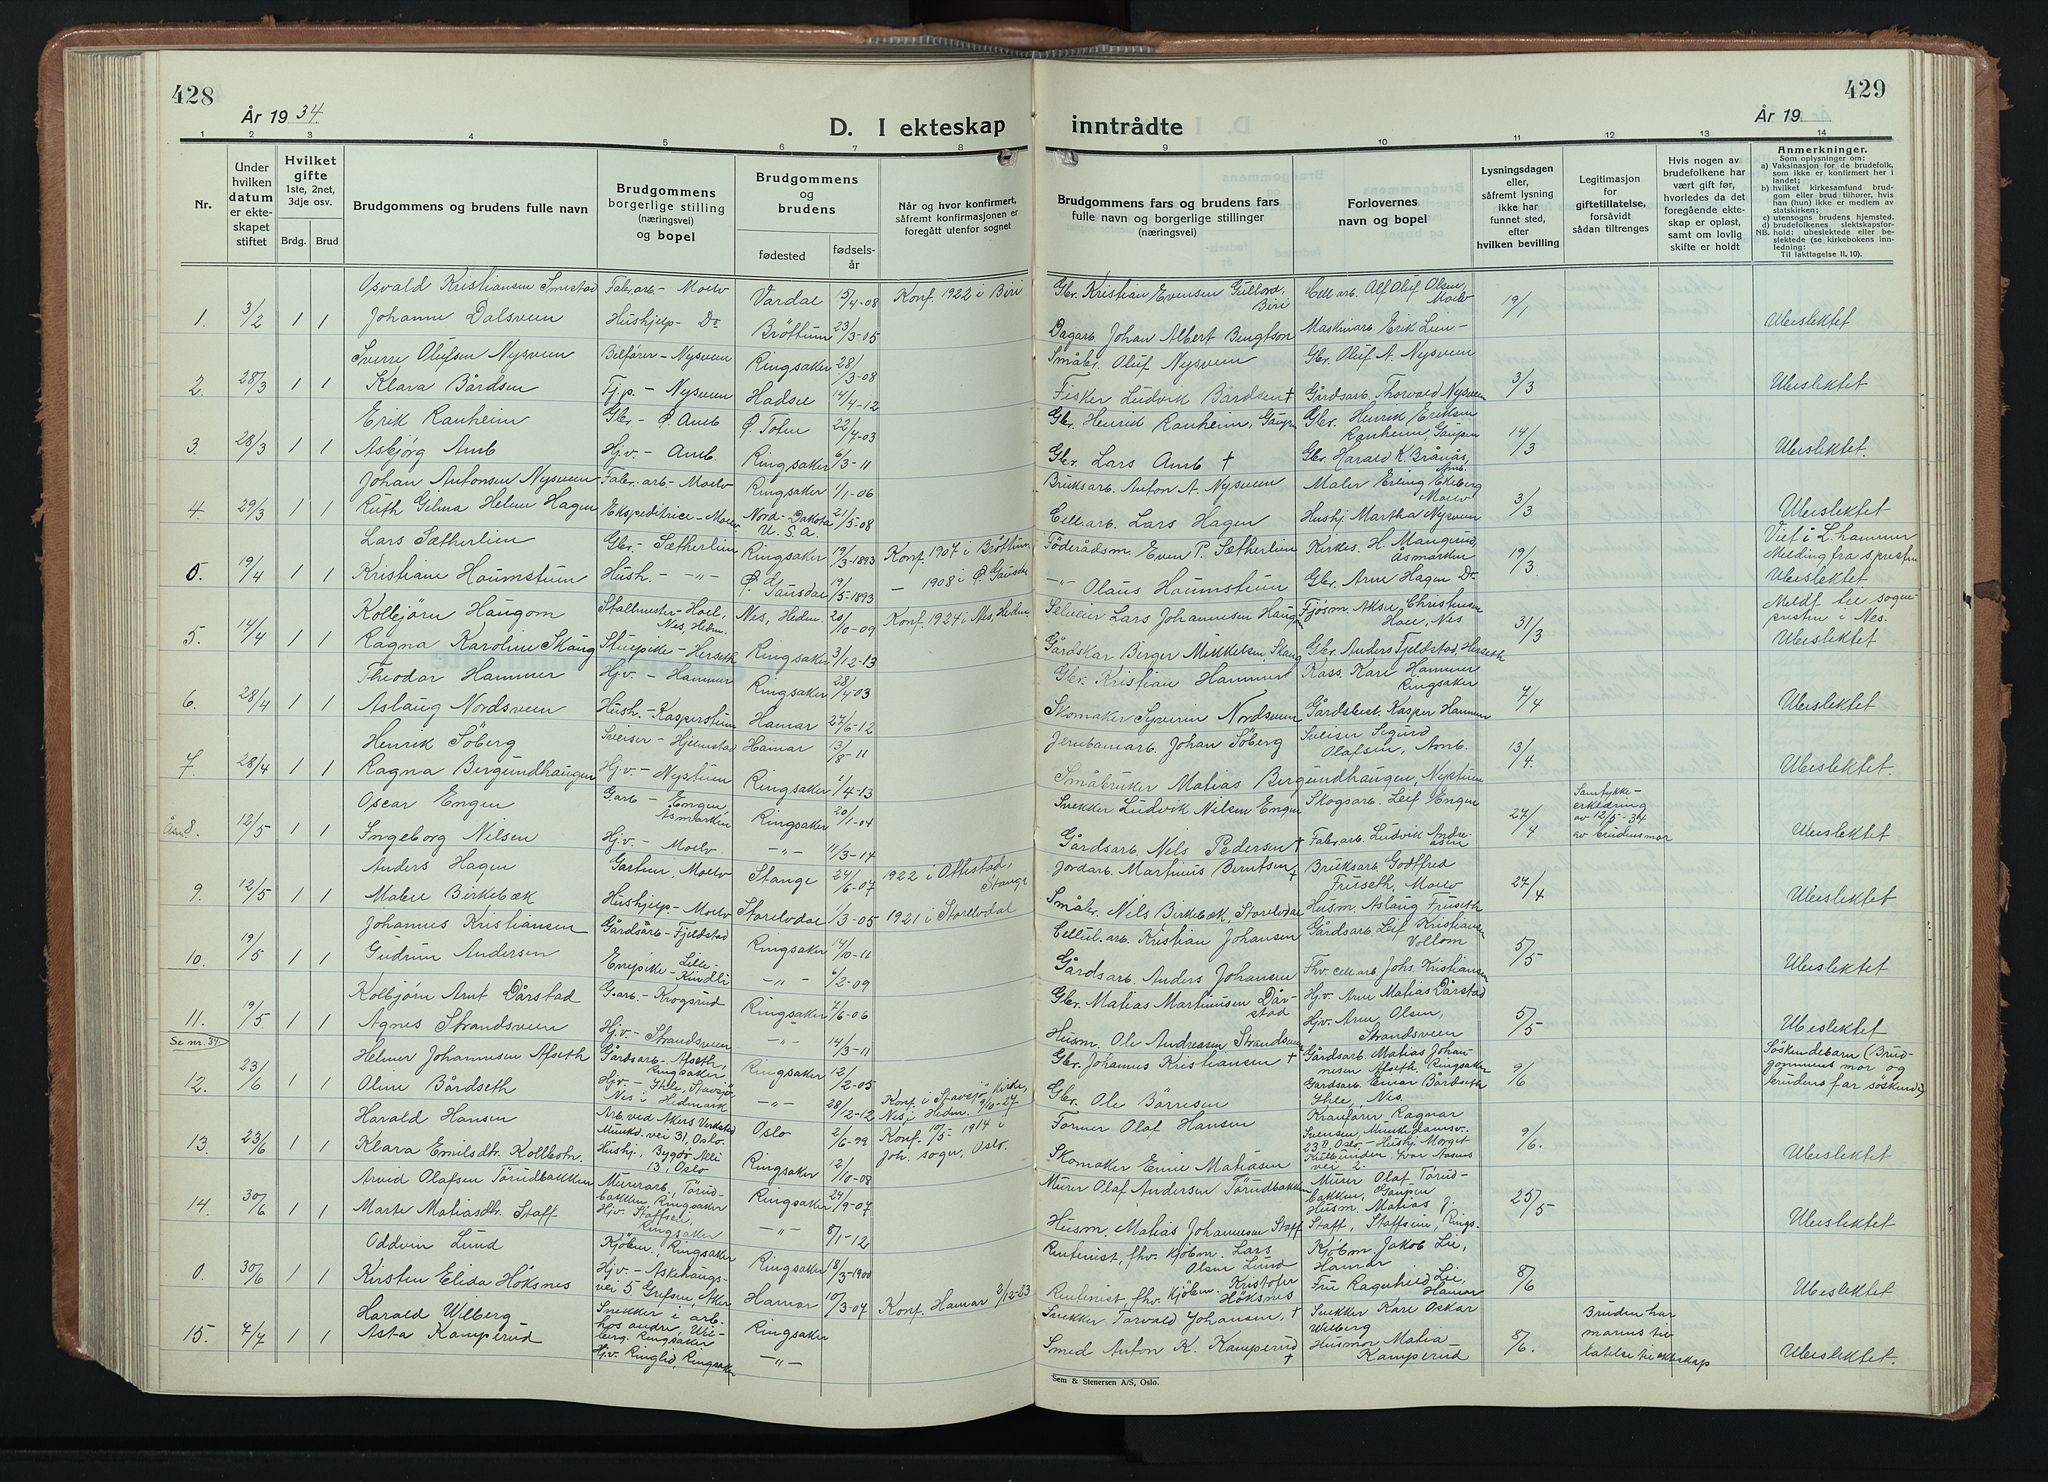 428
År 1934
D. I ekteskap
1 2 3 4 5 6 7 8
Nr.
Under hvilken datum er ekteskapet stiftet
Hvilket gifte
1ste, 2net, 3dje osv.
Brdg. Brud
Brudgommens og brudens fulle navn
Brudgommens borgerlige stilling (næringsvei) og bopel
Brudgommens og brudens
fødested
fødselsår
Når og hvor konfirmert, såfremt konfirmasjonen er foregått utenfor sognet
Osvald Kristiansen Smestad Fabr.arb. - Moelv Vardal 15/4-08 Konf. 1922 i Biri
1. 3/2 1 1 Johanne Dalsveen Hushjelp - Do Brøttum 23/3-05
Sverre Olufsen Nysveen Bilfører - Nysveen Ringsaker 28/3-08
2. 28/3 1 1 Klara Bårdsen Tj.p. - Nysveen Hadsel 14/4-12
Erik Ranheim Gbr. - Ø. Amb Ø. Toten 22/4-03
3. 28/3 1 1 Asbjørg Amb Hj.v. - Amb. Ringsaker 6/3-11
Johan Antonsen Nysveen Fabr.arb. - Moelv Ringsaker 1/1-06
4. 29/3 1 1 Ruth Gelina Helene Hagen Ekspeditrice - Moelv Nord-Dakota U.S.A. 21/5-08
Lars Sætherlien Gbr. - Sætherlien Ringsaker 19/3-1893 Konf. 1907 i Brøttum
0. 19/4 1 1 Kristiane Haumstuen Hush. - -"- Ø. Gausdal 19/5-1893 - 1908 i Ø. Gausdal
Kolbjørn Haugom Stallmester - Hoel, Nes, Hedm. Nes, Hedm. 20/10-09 Konf. 1924 i Nes, Hedm.
5. 14/4 1 1 Ragna Karoline Skaug Stuepike - Herseth Ringsaker 3/12-13
Theodor Hammer Hj.v. - Hammer Ringsaker 28/4-03
6. 28/4 1 1 Aslaug Nordsveen Hush. - Kasperstuen Hamar 27/6-12
Henrik Söberg Sveiser - Hjelmstad Hamar 13/8-11
7. 28/4 1 1 Ragna Bergundhaugen Hj.v. - Nystuen Ringsaker 1/4-13
Oscar Engen G.arb - Engen Åsmarken Ringsaker 20/1-04
Åsm. 8. 12/5 1 1 Ingeborg Nilsen Hj.v. - Moelv -"- 11/3-14
Anders Hagen Moelv Stange 24/6-07 1922 i Ottestad, Stange
9. 12/5 1 1 Malie Birkebæk Hushjelp - Moelv Storelvdal 1/3-05 1921 i Storelvdal
Johannes Kristiansen Gårdsarb - Fjeldstad Ringsaker 14/10-11
10. 19/5 1 1 Gudrun Andersen Lille-Kindli -"- 6/2-09
Kolbjørn Arnt Dårstad G.arb - Krogsrud Ringsaker 7/6-06
11. 19/5 1 1 Agnes Strandsveen Hj.v. - Strandsveen -"- 14/3-11
Se nr. 34
Helmer Johannesen Afseth Gårdsarb. - Afseth, Ringsaker Ringsaker 12/2-05
12. 23/6 1 1 Oline Bårdseth Hj.v. - Ihle, Stavsjö, Nes i Hedmark -"- 28/12-12 Konf. i Stavsjö Kirke, Nes i Hedm. 9/10-27
Harald Hansen Arb. ved Akers Verksted Munkd.vei 31, Oslo. Oslo 2/6-99 Konf. 10/5-1914 i Joh. sogn, Oslo.
13. 23/6 1 1 Klara Emilsdtr. Kollbotn. Hushj., Bygdø Allé 13, Oslo Ringsaker 2/10-08
Arvid Olafsen Törudbakken Murerarb., Törudbakken, Ringsaker Ringsaker 24/9-07
14. 30/6 1 1 Marte Matiasdtr. Staff Hj.v. Staffsein, Ringsaker -"- 8/1-12
Oddvin Lund Kjöbm., Ringsaker Ringsaker 18/3-1900
0. 30/6 1 1 Kirsten Elida Höksnes Hj.v. - Askehaugsvei 5 Grefsen, Aker Hamar 10/3-04 Konf. Hamar 2/12-23
Harald Wilberg Snekker i arb. hos andre, Wilberg, Ringsaker Ringsaker
15. 7/7 1 1 Asta Kamperud Hj.v. Ringlid Ringsaker -"-
429
År 19
inntrådte
9 10 11 12 13 14
Brudgommens fars og brudens fars fulle navn og borgerlige stillinger (næringsvei)
Forlovernes navn og bopel
Lysningsdagen eller, såfremt lysning ikke har funnet sted, efter hvilken bevilling
Legitimasjon for giftetillatelse, forsåvidt sådan tiltrenges
Hvis nogen av brudefolkene har vært gift før, hvorledes da det foregående ekteskap er opløst, samt om lovlig skifte er holdt
Anmerkninger.
Som oplysninger om:
a) Vaksinasjon for de brudefolk, som ikke er konfirmert her i landet;
b) hvilket kirkesamfund brudgom eller brud tilhører, hvis han (hun) ikke er medlem av statskirken;
c) utensogns brudens hjemsted.
d) brudefolkenes slektskapsforhold; ubeslektede eller beslektede (se kirkebokens innledning:
NB.
Til iakttagelse II. 10).
Gbr. Kristian Evensen Gullord, Biri Cell.arb. Alf Oluf Olsen, Moelv 19/1
Dagarb. Johan Albert Bengtson Maskinarb. Erik Lien - Ubeslektet
Småbr. Oluf Nysveen Gbr. Oluf A. Nysveen 3/3
Fisker Ludvik Bårdsen † Gårdsarb. Thorvald Nysveen Ubeslektet
Gbr. Henrik Ranheim, Gaupen Gbr. Henrik Eriksen Ranheim, Gaupen 14/3
Gbr. Lars Amb † Gbr. Harald K. Brånås, Amb. Ubeslektet.
Bruksarb. Anton A. Nysveen Maler Erling Ekeberg Moelv 3/3
Cell.arb. Lars Hagen Hushj. Martha Nysveen Ubeslektet
Föderådsm. Even P. Sætherlien Kirkes. H. Mangrud, Åsmarken 19/3 Viet i L.hammer Melding fra s.presten
-"- Olaus Haumstuen Gbr. Arne Hagen Do Ubeslektet
Selveier Lars Johannesen Haugom Fjøsm. Aksel Christensen Hoel, Nes 31/3 Meldt til sognepresten i Nes.
Gårdskar Berger Mikkelsen Skaug Gbr. Anders Fjeldstad, Herseth Ubeslektet
Gbr. Kristian Hammer Kass. Kåre Hammer Ringsaker 7/4
Skomaker Syverin Nordsveen Gårdsbest. Kasper Hammer Ubeslektet
Jernbanearb. Johan Söberg Sveiser Sigurd Olafsen, Amb. 13/4
Småbruker Matias Bergundhaugen, Nystuen Ubeslektet.
Snekker Ludvik Nilsen Engen Skogsarb. Leif Engen 27/4 Samtykkeerklæring av 12/5-34 av brudens mor
Gårdsarb. Nils Pedersen † Fabr.arb. Ludvik Andreasen Ubeslektet
Jordarb. Martinius Berntsen † Bruksarb. Godtfred Fruseth, Moelv 27/4
Småbr. Nils Birkebæk, Storelvdal Husm. Aslaug Fruseth Ubeslektet
Cellul.arb. Kristian Johansen Gårdsarb. Leif Kristiansen Vollom 5/5
Gårdsarb. Anders Johansen Fhv. cell.arb. Johs. Kristiansen Ubeslektet
Gbr. Matias Martinusen Dårstad Hj.v. Arne Matias Dårstad 5/5
Husm. Ole Andreasen Strandsveen Hj.v. Arne Olsen, Strandsveen Ubeslektet
Gbr. Johannes Kristiansen † Gårdsarb. Matias Johannesen Afseth, Ringsaker 9/6 Söskendebarn (Brudgommens mor og brudens far söskende)
Gbr. Ole Börresen Gårdsarb. Einar Bårdseth Ihle, Nes.
Former Olaf Hansen Kranförer Ragnar Svensen, Munkedamsv. 23 II, Oslo - Hushj. Margit Kulblinder, Ivar Aasens vei 2. 9/6.
Skomaker Emil Matiasen Ubeslektet
Murer Olaf Andersen Törudbakken Murer Olaf Törudbakken, Gaupen 25/5
Husm. Matias Johannesen Staff Husm. Matias J. Staff, Staffsein, Rings. Ubeslektet
Rentenist, fhv. kjöbm. Lars Olsen Lund Kjöbm. Jakob Lie, Hamar 8/6
Rentenist fhv. Kjöbm. Kristofer Höksnes Fru Ragnhild Lie, Hamar Ubeslektet
Snekker Torvald Johansen, † Snekker Kåre Oskar Wilberg 8/6. Bruden har morens tillatelse til ekteskap
Smed Anton K. Kamperud † Husmor Matea Kamperud Ubeslektet.
Sem & Stenersen A/S, Oslo.